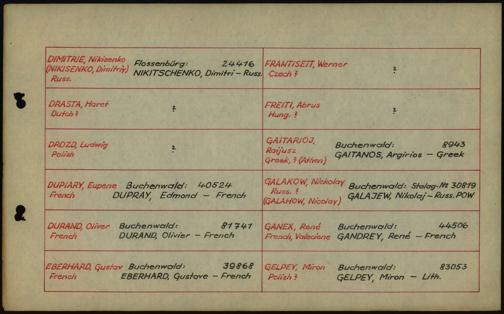 DIMITRIE, Nikisenko
(NIKISENKO, Dimitriy)
Russ.
Flossenbürg: 24416
NIKITSCHENKO, Dimitri - Russ.
DRASTA, Haret
Dutch?
?
DROZD, Ludwig
Polish
?
DUPIARY, Eugene
French
Buchenwald: 40524
DUPRAY, Edmond - French
DURAND, Oliver
French
Buchenwald: 81741
DURAND, Olivier - French
EBERHARD, Gustav
French
Buchenwald: 39868
EBERHARD, Gustave - French
FRANTISETT, Werner
Czech?
?
FREITI, Abrus
Hung.?
?
GAITARIOJ,
Raijusz
Greek,? (Athen)
Buchenwald: 8943
GAITANOS, Argirios - Greek
GALAKOW, Nickolay
Russ. ?
(GALAHOW, Nicolay)
Buchenwald: Stalag-№ 30819
GALAJEW, Nikolaj - Russ. POW
GANEX, René
French,
Buchenwald: 44506
GANDREY, René - French
GELPEY, Miron
Polish?
Buchenwald: 83053
GELPEY, Miron - Lith.